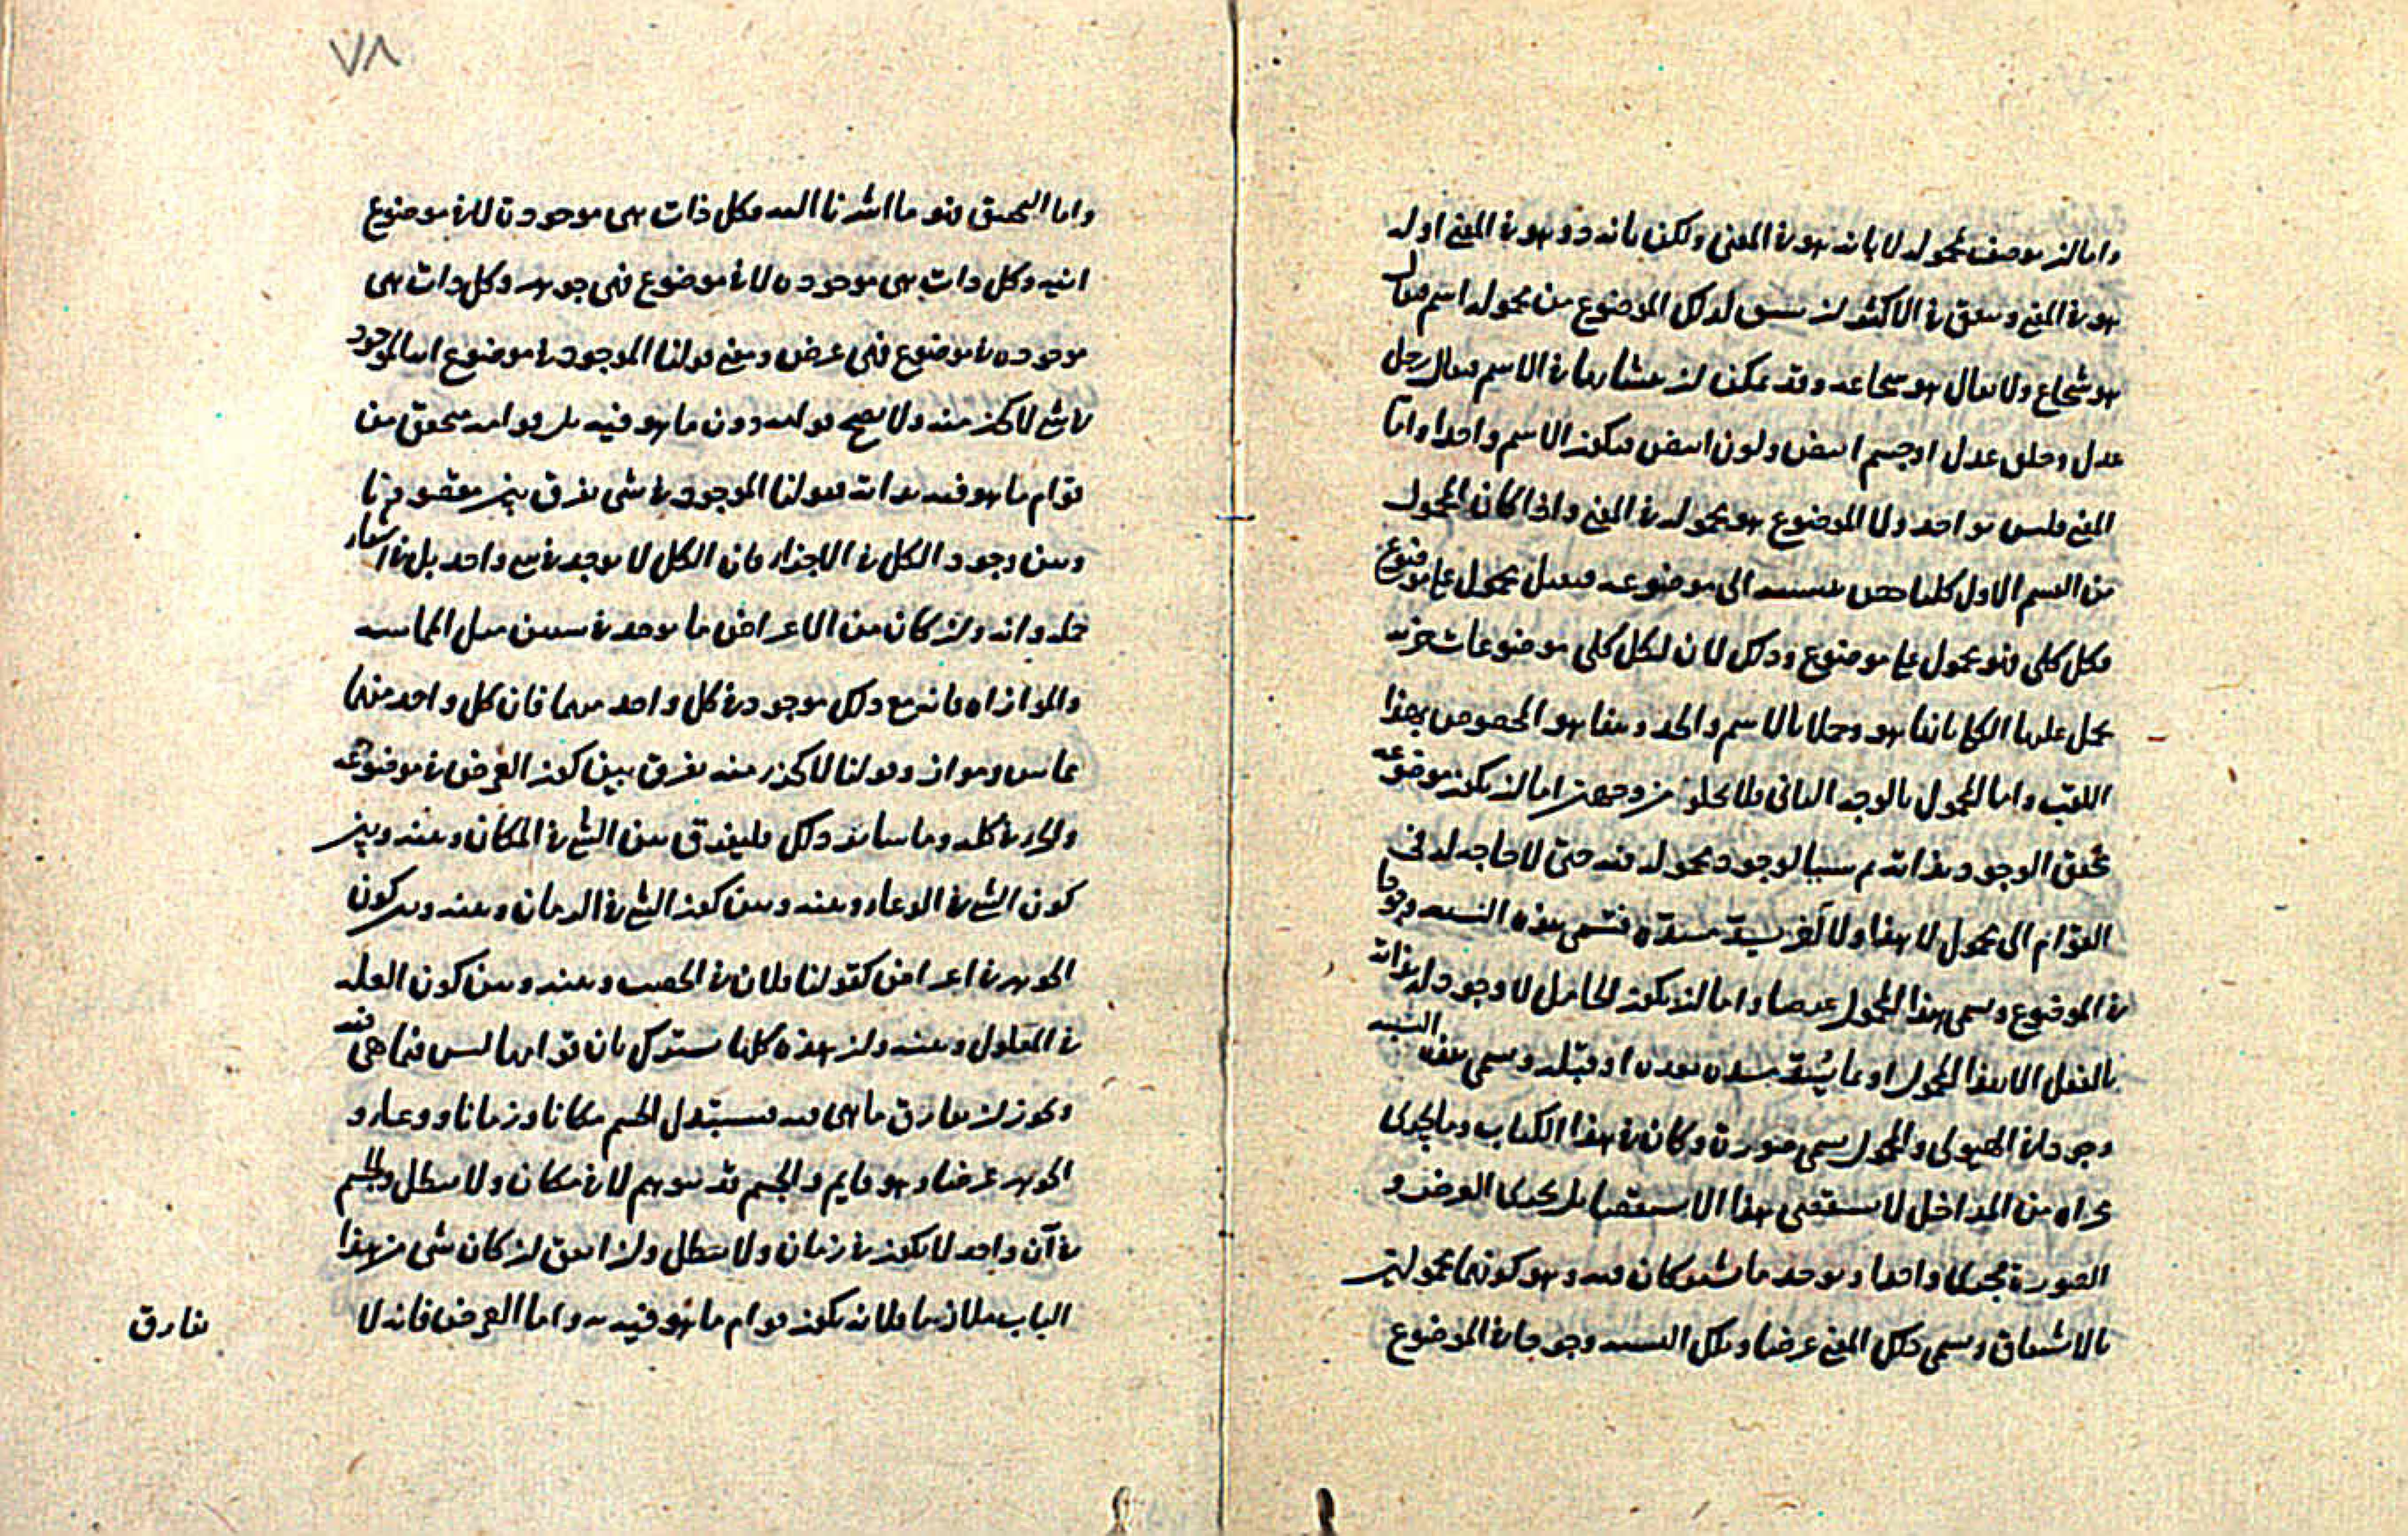 واما ان يوصف بمحموله لا بانه هو في المعنى ولكن بانه ذو هو في المعنى او له
هو في المعنى ويتفق في الاكثر ان يشتق لذلك الموضوع من محموله اسم فيقال
هو شجاع ولا يقال هو شجاعة وقد يمكن ان يتشاركا في الاسم فيقال رجل
عدل وخلق عدل او جسم ابيض ولون ابيض فيكون الاسم واحدا واما
المعنى فليس بواحد ولا الموضوع هو محموله في المعنى واذا كان المحمول
من القسم الاول كليا خص بنسبته الى موضوعه فقيل محمول على موضوع
فكل كلى فهو محمول على موضوع وذلك لان لكل كلى موضوعات جزئية
يحمل عليها الكلى بانها هو وحملا بالاسم والحد وهذا هو المخصوص بهذا
اللقب واما المحمول بالوجه الثانى فلا يخلو من وجهين اما ان يكون موضوعه
محقق الوجود بذاته ثم سببا لوجود محموله فيه حتى لا حاجة له فى
القوام الى محمول لا هذا ولا آخر يسد مسده فتسمى هذه النسبة وجودا
في الموضوع ويسمى هذا المحمول عرضا واما ان يكون الحامل لا وجود له بذاته
بالفعل الا بهذا المحمول او بما يسد مسده بعده او قبله ويسمى هذه النسبة
وجودا في الهيولى والمحمول يسمى صورة وكان في هذا الكتاب وما يجرى
مجراه من المداخل لا يستقصى هذا الاستقصا بل يجرى العرض و
الصورة مجرى واحدا ويوجد ما يشتركان فيه وهو كونهما محمولين
بالاشتقاق ويسمى ذلك المعنى عرضا وتلك النسبة وجودا في الموضوع
٧٨
واما التحقيق فهو ما اشرنا اليه فكل ذات هى موجودة لا في موضوع
انية وكل ذات هى موجوده لا في موضوع فهى جوهر وكل ذات هى
موجوده في موضوع فهى عرض ومعنى قولنا الموجود في موضوع اى الموجود
في شى لا كجزء منه ولا يصح قوامه دون ما هو فيه بل قوامه متحقق من
قوام ما هو فيه بذاته فقولنا الموجود في شى يفرق بين مقصودنا
وبين وجود الكل في الاجزاء فان الكل لا يوجد في شى واحد بل في اشياء
جملة وانه وان كان من الاعراض ما يوجد في شيئين مثل المماسة
والموازاه فانه مع ذلك موجود في كل واحد منهما فان كل واحد منهما
مماس ومواز وقولنا لا كجزء منه يفرق بين كون العرض في موضوعه
والجزء في كله وما سائر ذلك فليفرق بين الشى في المكان وبينه وبين
كون الشى في الوعاء وبينه وبين كون الشى في الزمان وبينه وبين كون
الجوهر في اعراض كقولنا فلان في الخصب وبينه وبين كون العلة
في المعلول وبينه وان هذه كلها تشترك بان قوامها ليس فيما هى فيه
ويجوز ان يفارق ما هى فيه فيستبدل الجسم مكانا وزمانا ووعاء و
الجوهر عرضا وهو قايم والجسم قد يتوهم لا في مكان ولا يبطل والجسم
في آن واحد لا يكون في زمان ولا يبطل وان اتفق ان كان شى من هذا
الباب ملازما فلا يكون قوام ما هو فيه به واما العرض فانه لا
يفارق